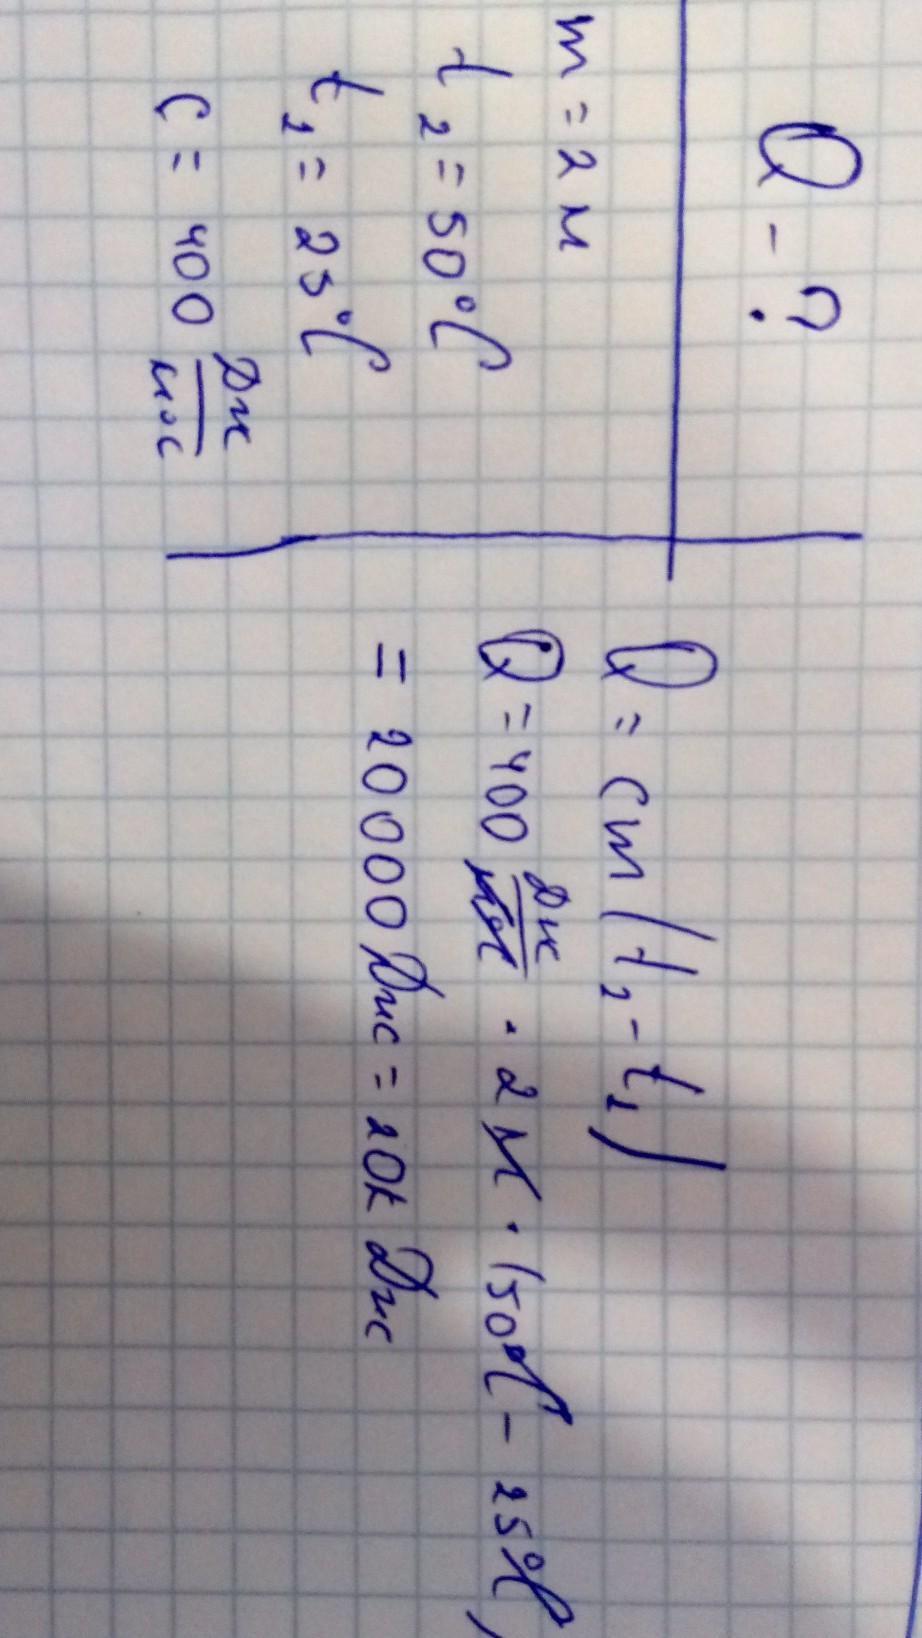 Q - ?
m = 2 кг
t₂ = 50°C
t₁ = 25°C
c = 400 Дж/кг°C
Q = cm(t₂ - t₁)
Q = 400 Дж/кг°C · 2 кг · (50°C - 25°C)
= 20000 Дж = 20к Дж